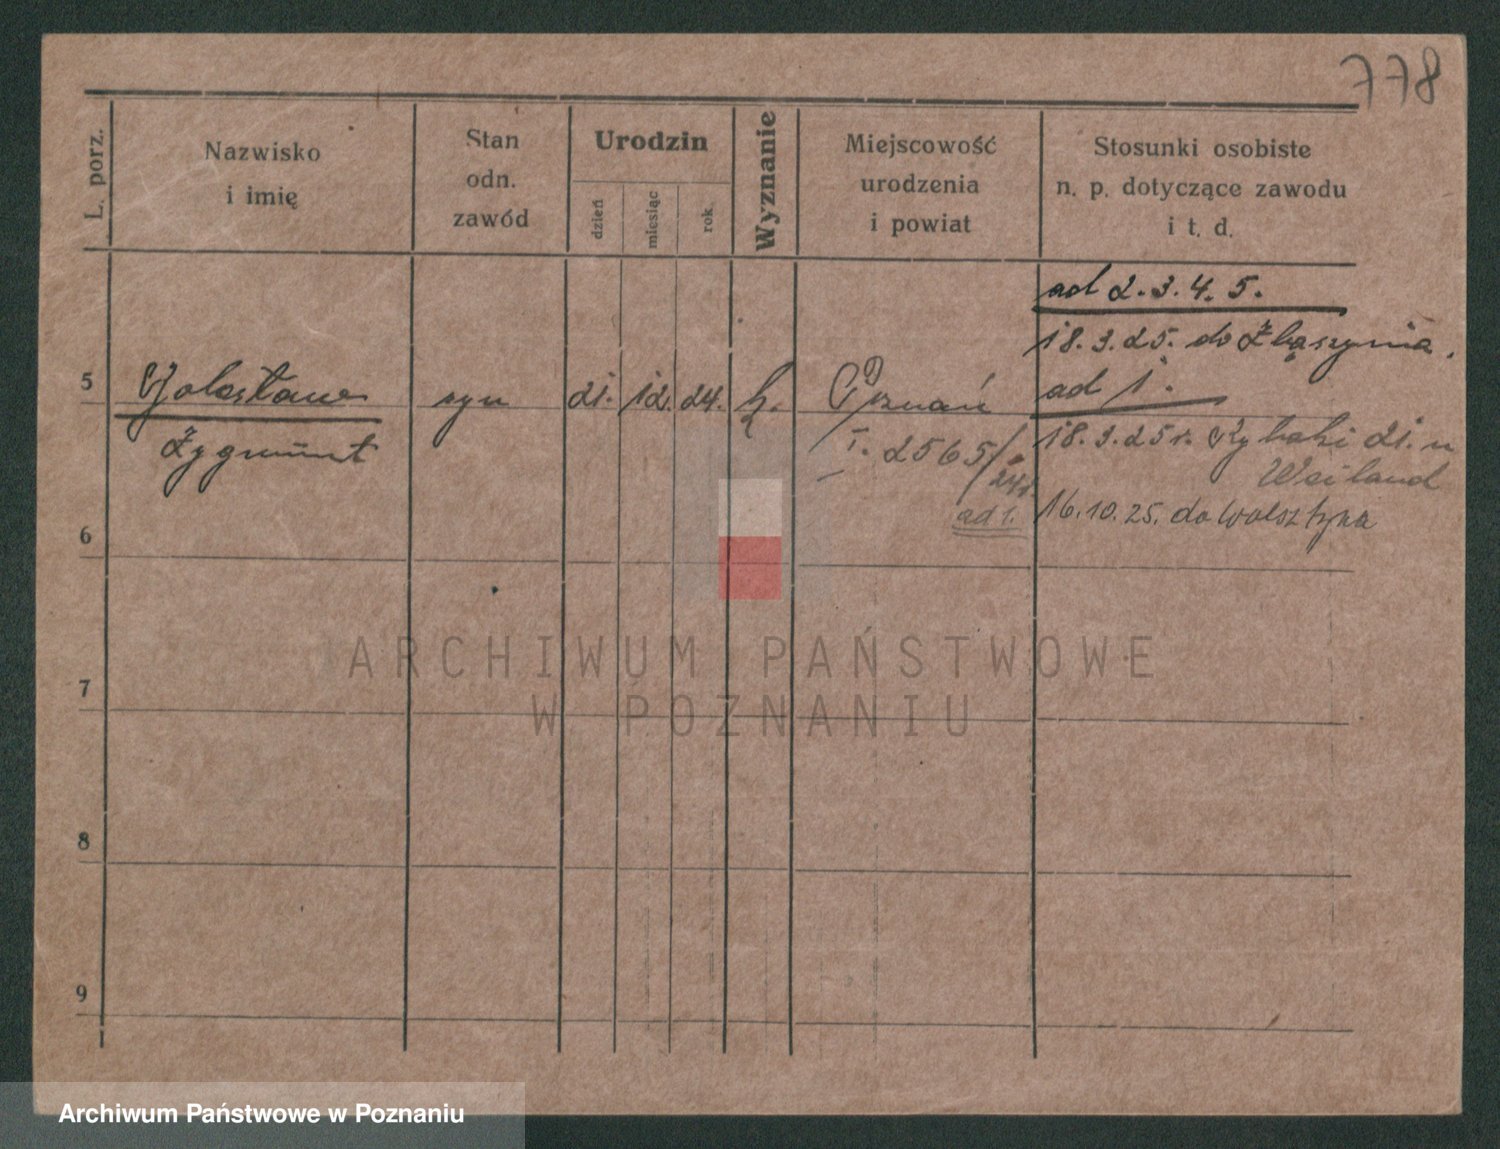 778
L. porz.
Nazwisko
i imię
Stan
odn.
zawód
Urodzin
dzień
miesiąc
rok.
Wyznanie
Miejscowość
urodzenia
i powiat
Stosunki osobiste
n. p. dotyczące zawodu
i t. d.
ad 2. 3. 4. 5.
18. 3. 25. do Zbąszynia.
5
syn
21. 12. 24.
k.
Poznań
ad 1.
Zygmunt
I. 2565/24
18. 3. 25 r. Rybaki 21. u
Weiland
ad 1.
16. 10. 25. do Wolsztyna
6
7
8
9
ARCHIWUM PAŃSTWOWE
W POZNANIU
Archiwum Państwowe w Poznaniu